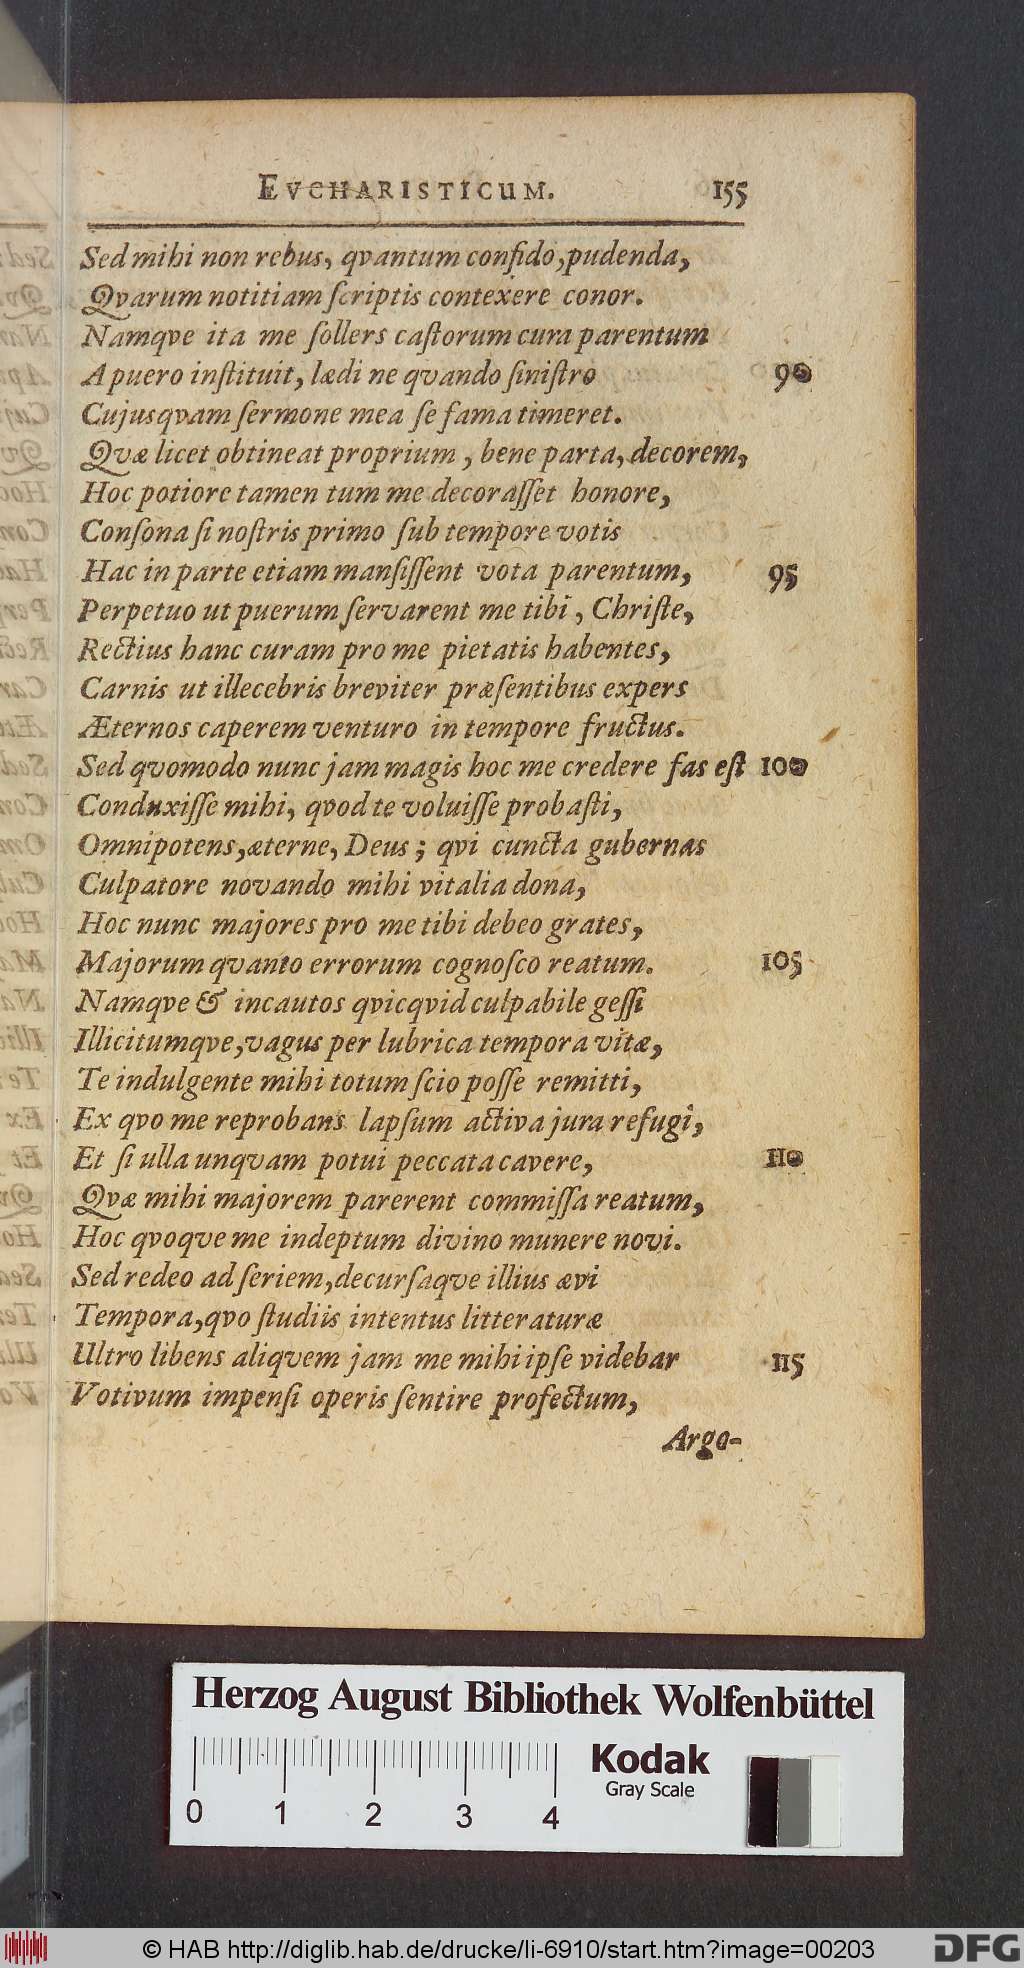 EVCHARISTICUM. 155
Sed mihi non rebus, qvantum confido, pudenda,
Qvarum notitiam ſcriptis contexere conor.
Namqve ita me ſollers caſtorum cura parentum
A puero inſtituit, lædi ne qvando ſiniſtro 90
Cujusqvam ſermone mea ſe fama timeret.
Qvæ licet obtineat proprium, bene parta, decorem,
Hoc potiore tamen tum me decoraſſet honore,
Conſona ſi noſtris primo ſub tempore votis
Hac in parte etiam manſiſſent vota parentum, 95
Perpetuo ut puerum ſervarent me tibi, Chriſte,
Rectius hanc curam pro me pietatis habentes,
Carnis ut illecebris breviter præſentibus expers
Æternos caperem venturo in tempore fructus.
Sed qvomodo nunc jam magis hoc me credere fas eſt 100
Conduxiſſe mihi, qvod te voluiſſe probaſti,
Omnipotens, æterne, Deus; qvi cuncta gubernas
Culpatore novando mihi vitalia dona,
Hoc nunc majores pro me tibi debeo grates,
Majorum qvanto errorum cognoſco reatum. 105
Namqve & incautos qvicqvid culpabile geſſi
Illicitumqve, vagus per lubrica tempora vitæ,
Te indulgente mihi totum ſcio poſſe remitti,
Ex qvo me reprobans lapſum activa jura refugî,
Et ſi ulla unqvam potui peccata cavere, 110
Qvæ mihi majorem parerent commiſſa reatum,
Hoc qvoqve me indeptum divino munere novi.
Sed redeo ad ſeriem, decurſaqve illius ævi
Tempora, qvo ſtudiis intentus litteraturæ
Ultro libens aliqvem jam me mihi ipſe videbar 115
Votivum impenſi operis ſentire profectum,
Argo-
Herzog August Bibliothek Wolfenbüttel
Kodak
Gray Scale
0 1 2 3 4
© HAB http://diglib.hab.de/drucke/li-6910/start.htm?image=00203
DFG